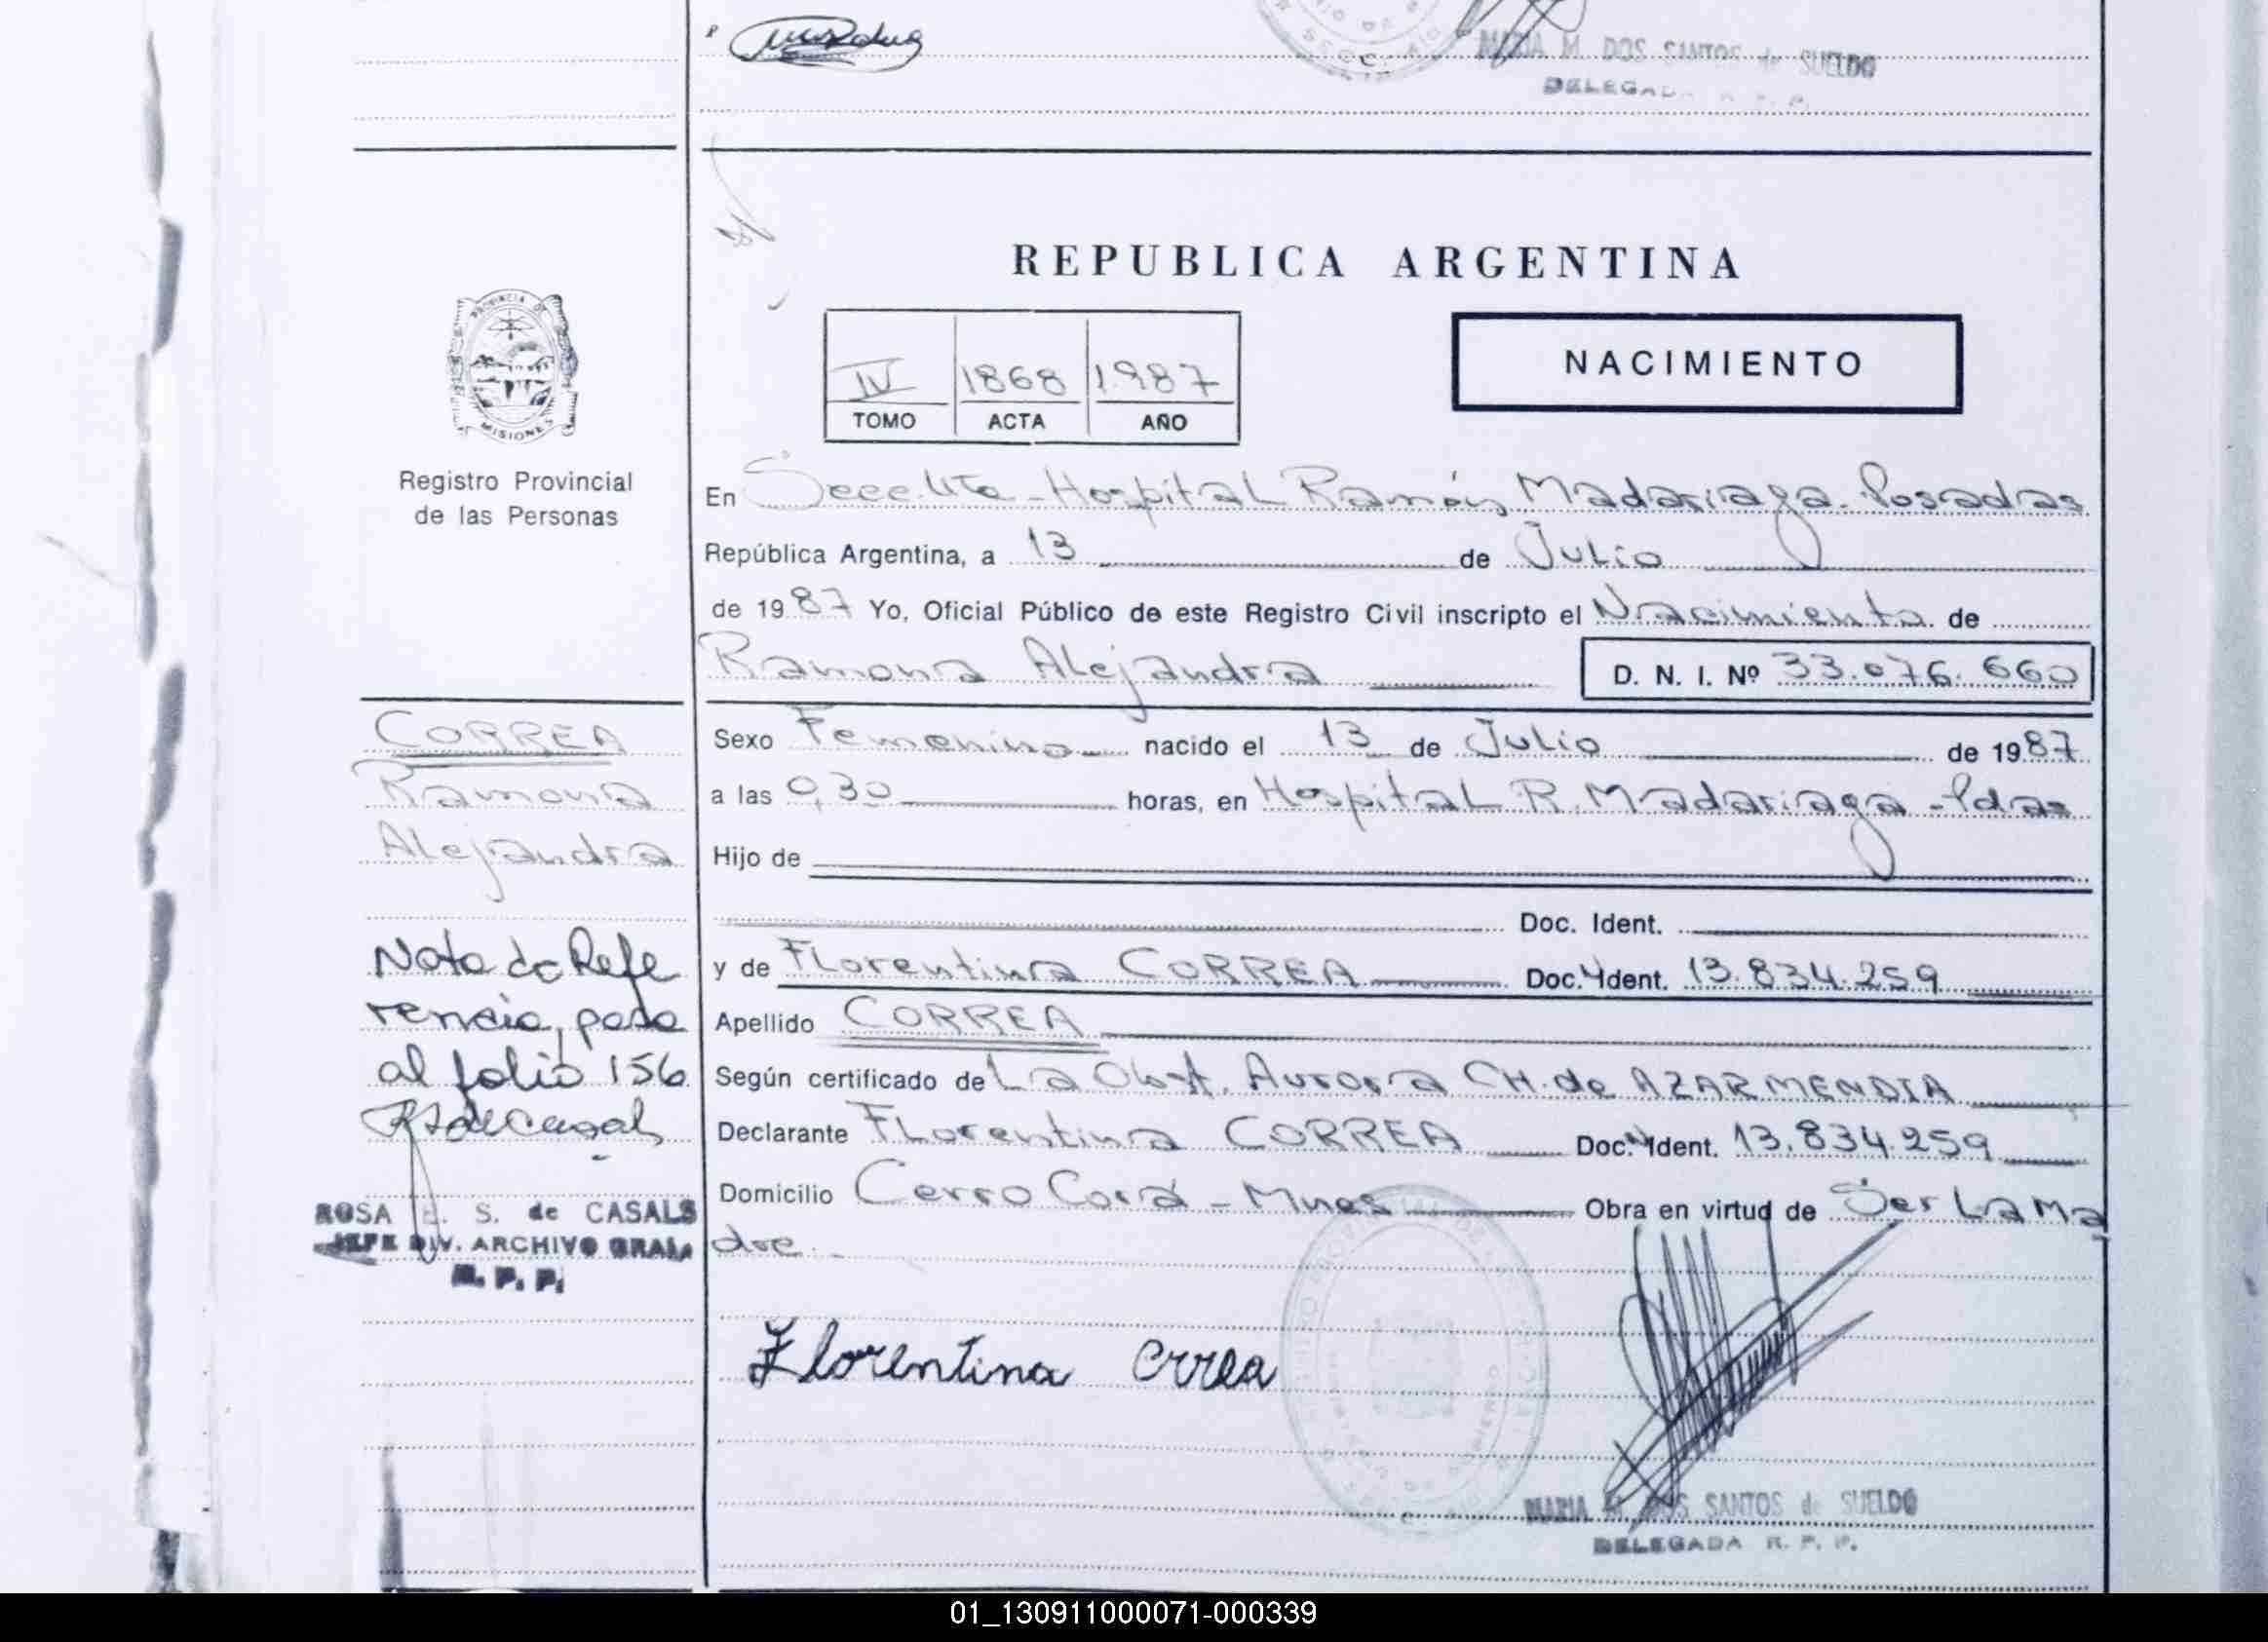 MARIA M. DOS SANTOS de SUELDO
DELEGADA R. P. P.
REPUBLICA ARGENTINA
PROVINCIA DE
MISIONES
Registro Provincial
de las Personas
IV 1868 1987
TOMO ACTA AÑO
NACIMIENTO
En Hospital Ramón Madariaga. Posadas
República Argentina, a 13 de Julio
de 1987 Yo, Oficial Público de este Registro Civil inscripto el Nacimiento de
Ramona Alejandra D. N. I. Nº 33.076.660
CORREA
Ramona
Alejandra
Sexo Femenino nacido el 13 de Julio de 1987
a las 0,30 horas, en Hospital R. Madariaga - Pdas
Hijo de
Doc. Ident.
y de Florentina CORREA Doc. Ident. 13.834.259
Apellido CORREA
Según certificado de La Obst. Aurora CH. de AZARMENDIA
Declarante Florentina CORREA Doc. Ident. 13.834.259
Domicilio Cerro Corá - Mnes Obra en virtud de Ser La Ma
dre.
Nota de Refe
rencia, pasa
al folio 156
ROSA S. de CASALS
JEFE DIV. ARCHIVO GRAL.
R. P. P.
Florentina Correa
MARIA M. DOS SANTOS de SUELDO
DELEGADA R. P. P.
01_130911000071-000339